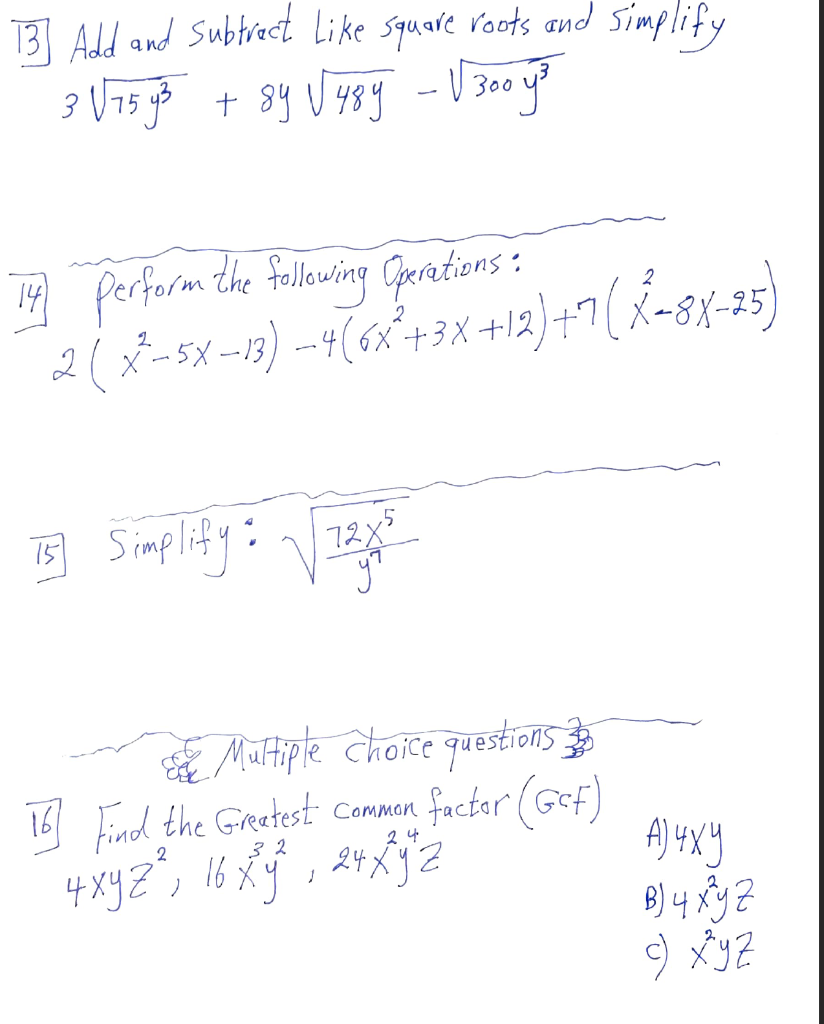 13] Add and Subtract Like square roots and Simplify
3 √75 y³ + 8y √48y - √300 y³
14] Perform the following Operations:
2 ( x² - 5x - 13) - 4(6x² + 3x + 12) + 7( x² - 8x - 25)
15] Simplify: √72x⁵/y⁷
Multiple choice questions
16] Find the Greatest common factor (GCF)
4xyz², 16x³y², 24x²y⁴z
A) 4xy
B) 4x²yz
C) x²yz